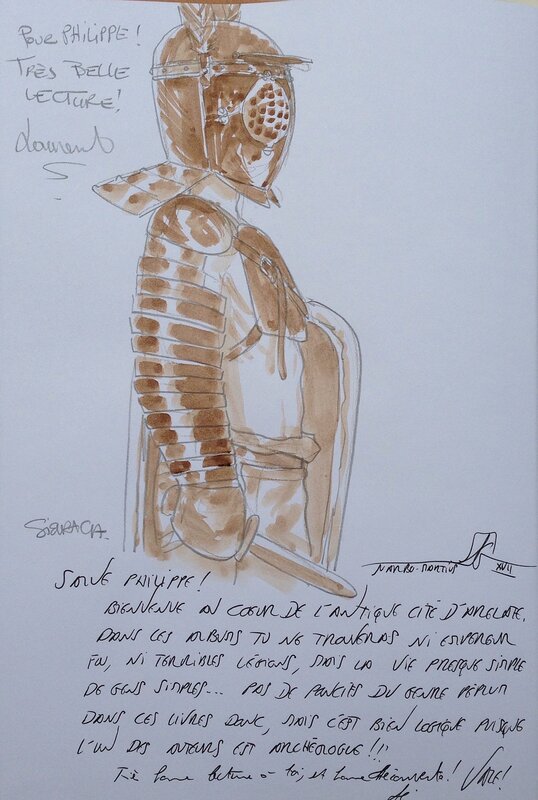 POUR PHILIPPE!
TRÈS BELLE
LECTURE!
Laurent
S
SIEURAC/A.
NARBO-MARTIUS XVII
SALVE PHILIPPE!
BIENVENUE AU COEUR DE L'ANTIQUE CITÉ D'ARELATE.
DANS CES ALBUMS TU NE TROUVERAS NI EMPEREUR
FOU, NI TERRIBLES LÉGIONS, MAIS LA VIE PRESQUE SIMPLE
DE GENS SIMPLES... PAS DE PONCIFS DU GENRE PÉPLUM
DANS CES LIVRES DONC, MAIS C'EST BIEN LOGIQUE PUISQUE
L'UN DES AUTEURS EST ARCHÉOLOGUE!!!
Très bonne lecture à toi, et bonne découverte! VALE!